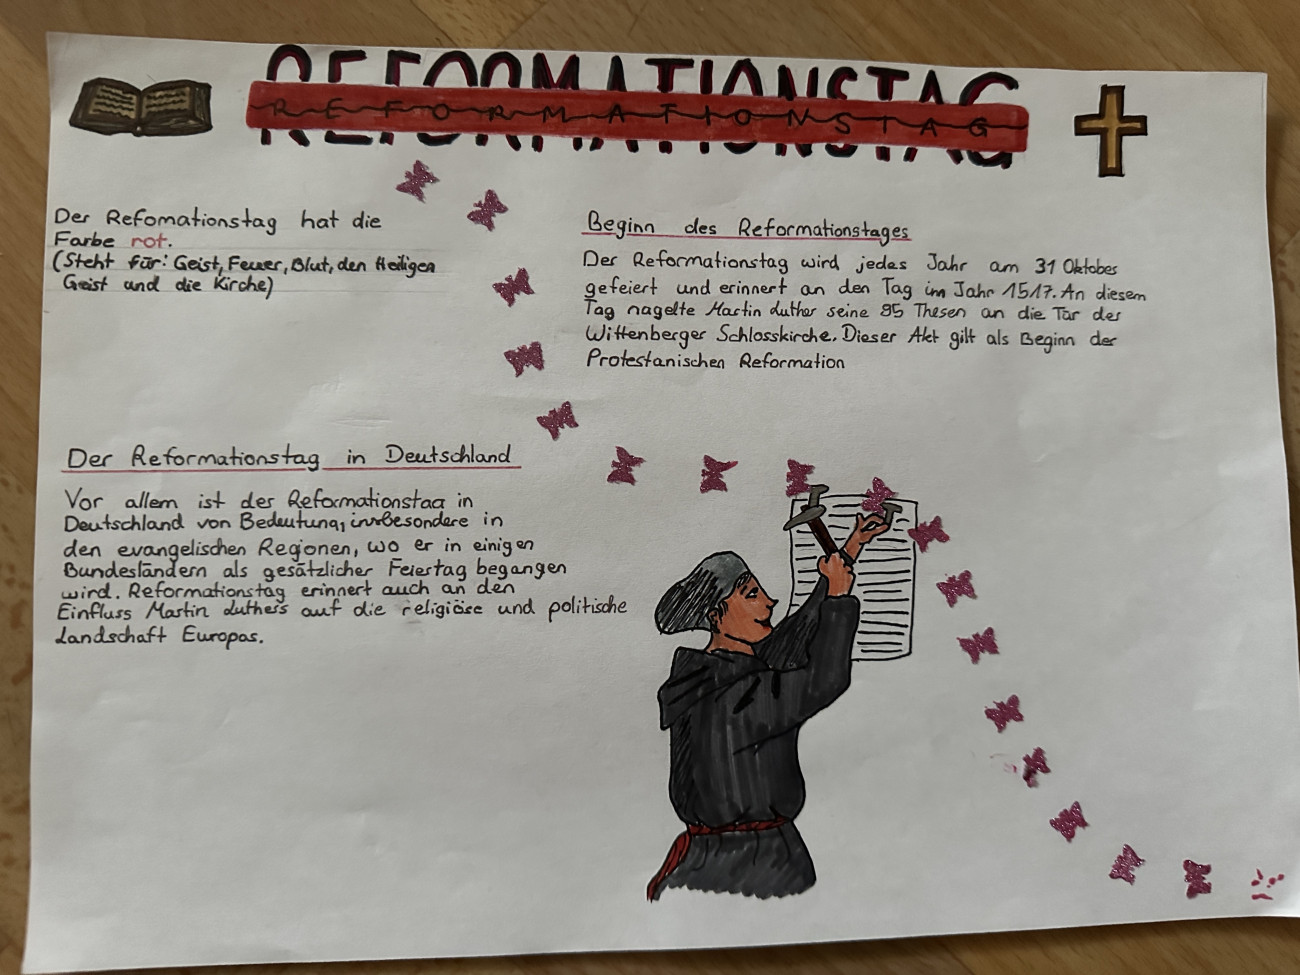 REFORMATIONSTAG
REFORMATIONSTAG
Der Refomationstag hat die
Farbe rot.
(Steht für: Geist, Feuer, Blut, den Heiligen
Geist und die Kirche)
Beginn des Reformationstages
Der Reformationstag wird jedes Jahr am 31 Oktober
gefeiert und erinnert an den Tag im Jahr 1517. An diesem
Tag nagelte Martin Luther seine 95 Thesen an die Tür der
Wittenberger Schlosskirche. Dieser Akt gilt als Beginn der
Protestanischen Reformation
Der Reformationstag in Deutschland
Vor allem ist der Reformationstag in
Deutschland von Bedeutung, insbesondere in
den evangelischen Regionen, wo er in einigen
Bundesländern als gesätzlicher Feiertag begangen
wird. Reformationstag erinnert auch an den
Einfluss Martin Luthers auf die religiöse und politische
Landschaft Europas.